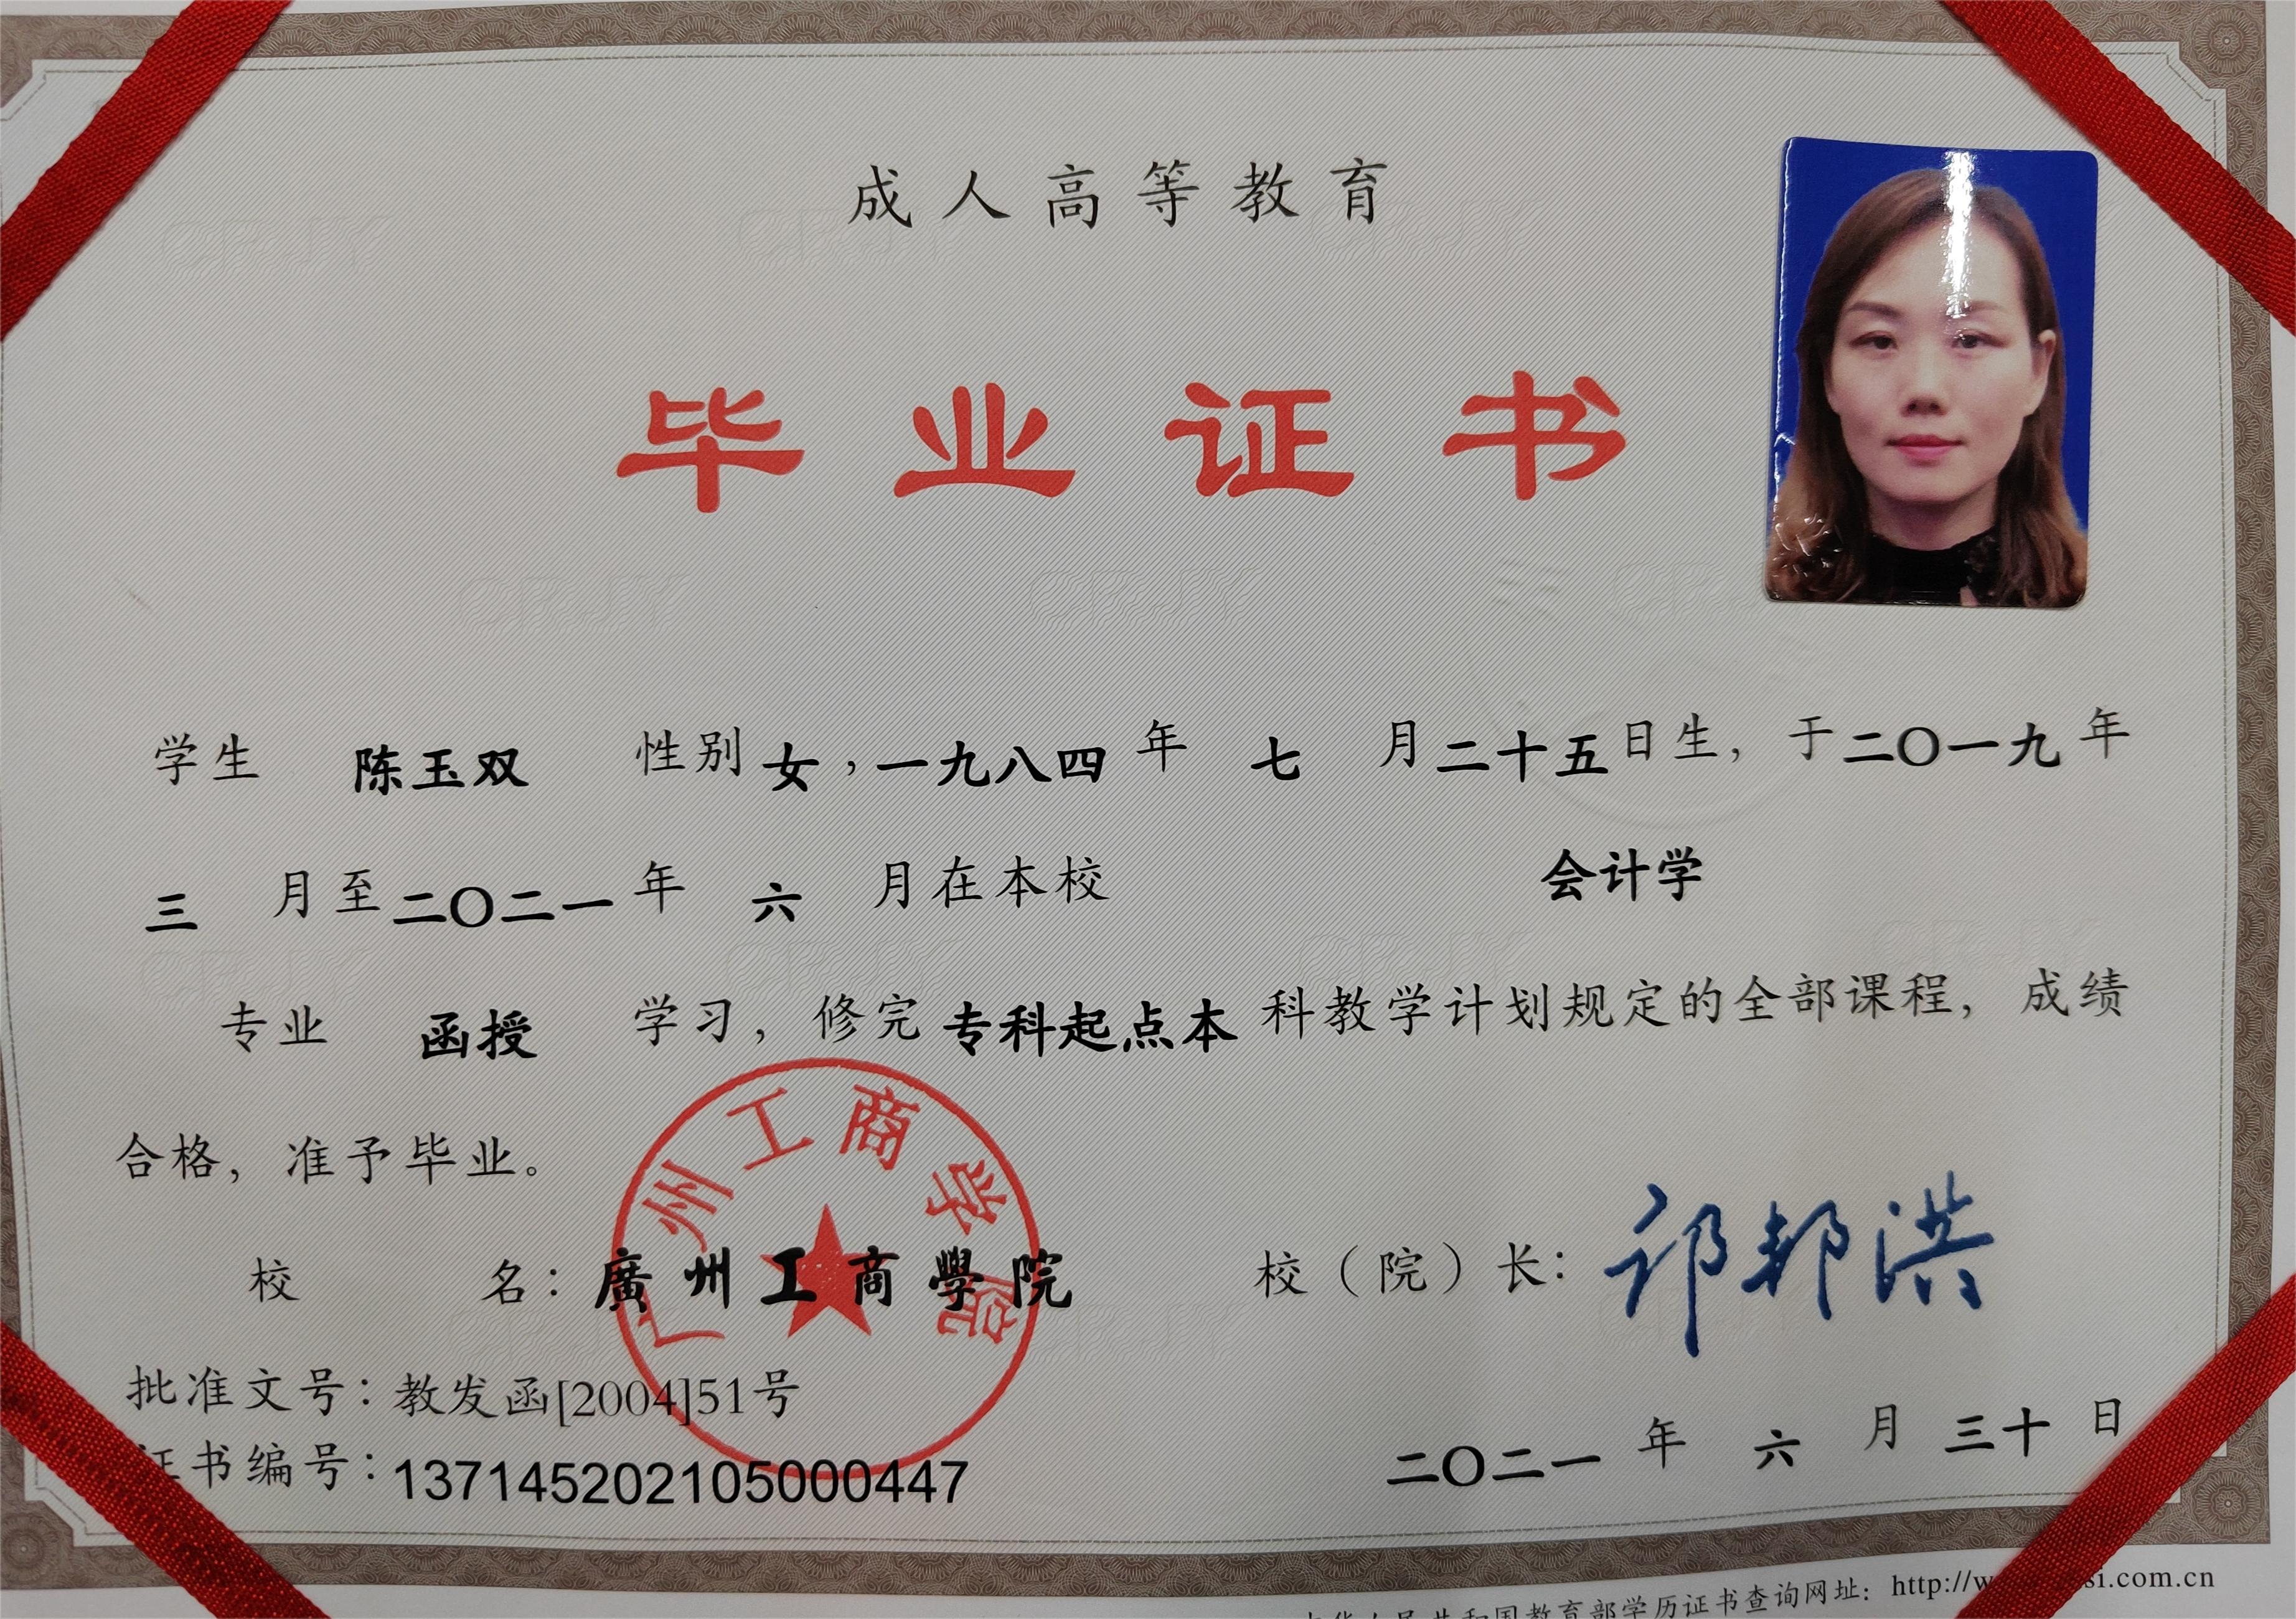 成人高等教育
毕业证书
学生 陈玉双 性别 女，一九八四 年 七 月 二十五 日生，于二〇一九 年
三 月至 二〇二一 年 六 月在本校 会计学
专业 函授 学习，修完 专科起点本 科教学计划规定的全部课程，成绩
合格，准予毕业。
广州工商学院
校 名：廣州工商學院 校（院）长：邝邦洪
批准文号：教发函[2004]51号
证书编号：137145202105000447 二〇二一 年 六 月 三十 日
中华人民共和国教育部学历证书查询网址：http://w si.com.cn
CRJY